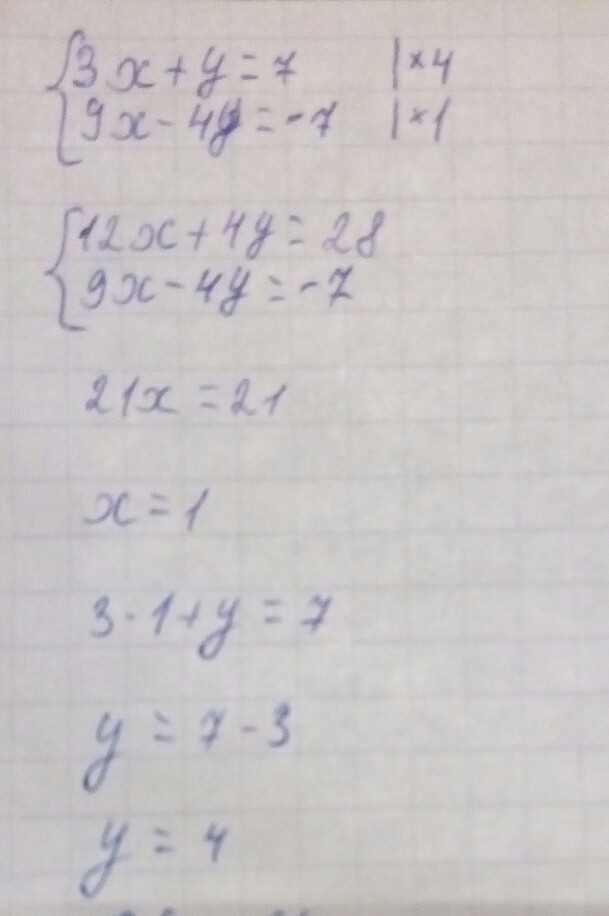 {3x+y=7 |×4
9x-4y=-7 |×1
{12x+4y=28
9x-4y=-7
21x=21
x=1
3·1+y=7
y=7-3
y=4